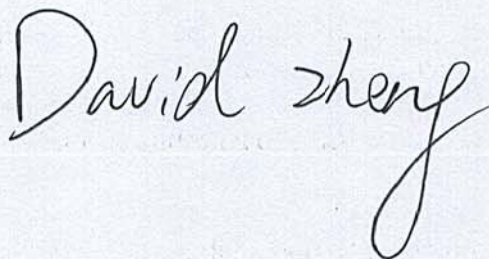 David zheng